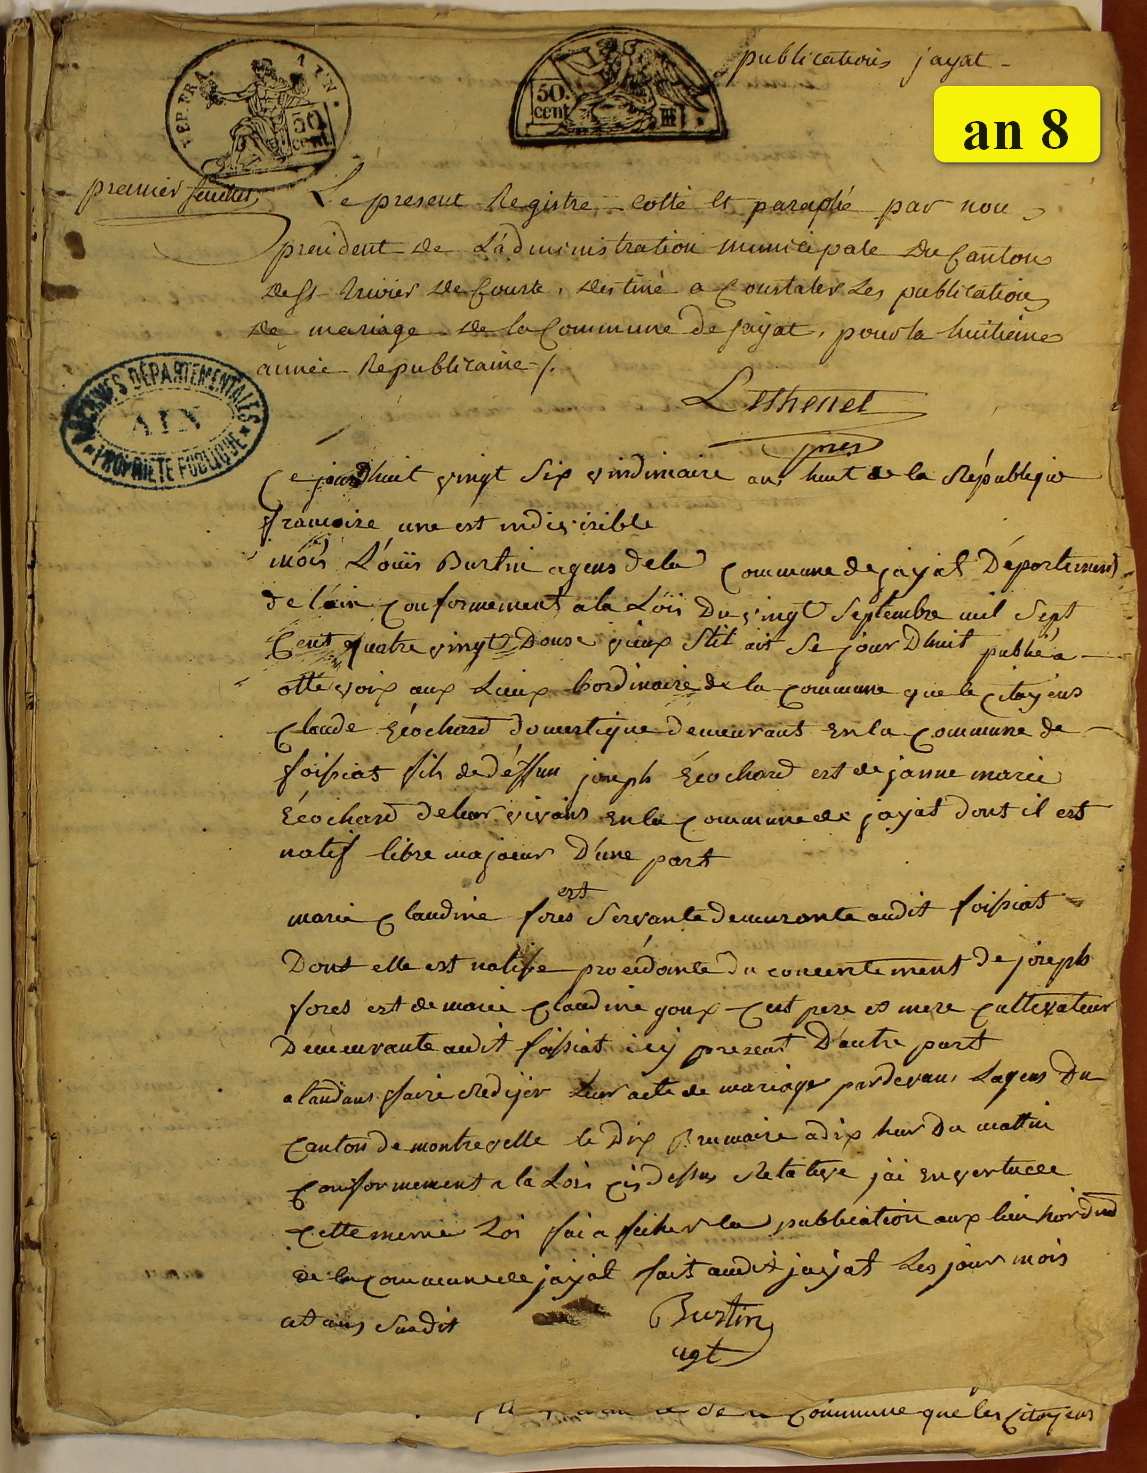 publications jayat -
an 8
REP. FRA. AIN.
50 cent
50. cent
premier feuillet
Le present Registre, cotté et paraphé par nou
president de L'administration municipale du Canton
de St trivier de Courte, destiné a Constater Les publication
de mariage de la Commune de jayat, pour la huitieme
année Republicaine /.
Lethenet
pres
ARCHIVES DÉPARTEMENTALES
AIN
PROPRIÉTÉ PUBLIQUE
Ce jourdhuit vingt Six vindimiaire an huit de la Républiqie
francoise une est indivisible
mois Louis Burtin agens de la Commune de jayat Département
de lain Conformement a la Lois Du vingt Septembre mil Sept
Cent quatre vingt Douse vieux Stit ait Se jour Dhuit publié a
otte voix aux Lieux hordinaire de la Commune que le Citoyens
Claude Ecochard domestique demeurant En la Commune de
foissiat fils de déffun joseph Ecochard est de janne marie
Ecochard de leur vivans En la Commune de jayat dont il est
natif libre majeur D'une part
est
marie Claudine fores Servante demeurante audit foissiat
Dont elle est natife procédante du concentement de joseph
fores est de marie Claudine goux Cest pere et mere Cultivateur
Demeurante audit foissiat icy present D'autre part
alandans faire Redijer Leur acte de mariage pardevans Lagens Du
Canton de montrevelle le Dix Brumaire a dix heur Du mattin
Conformement a la Lois Cidessus Relative jai En vertu de
Cette meme Loi fai afficher la publication aux lieu hordind
de la Commune de jayat fait audit jayat Les jour mois
et ans Susdit
Burtin
agt
de la Commune que les Citoyens